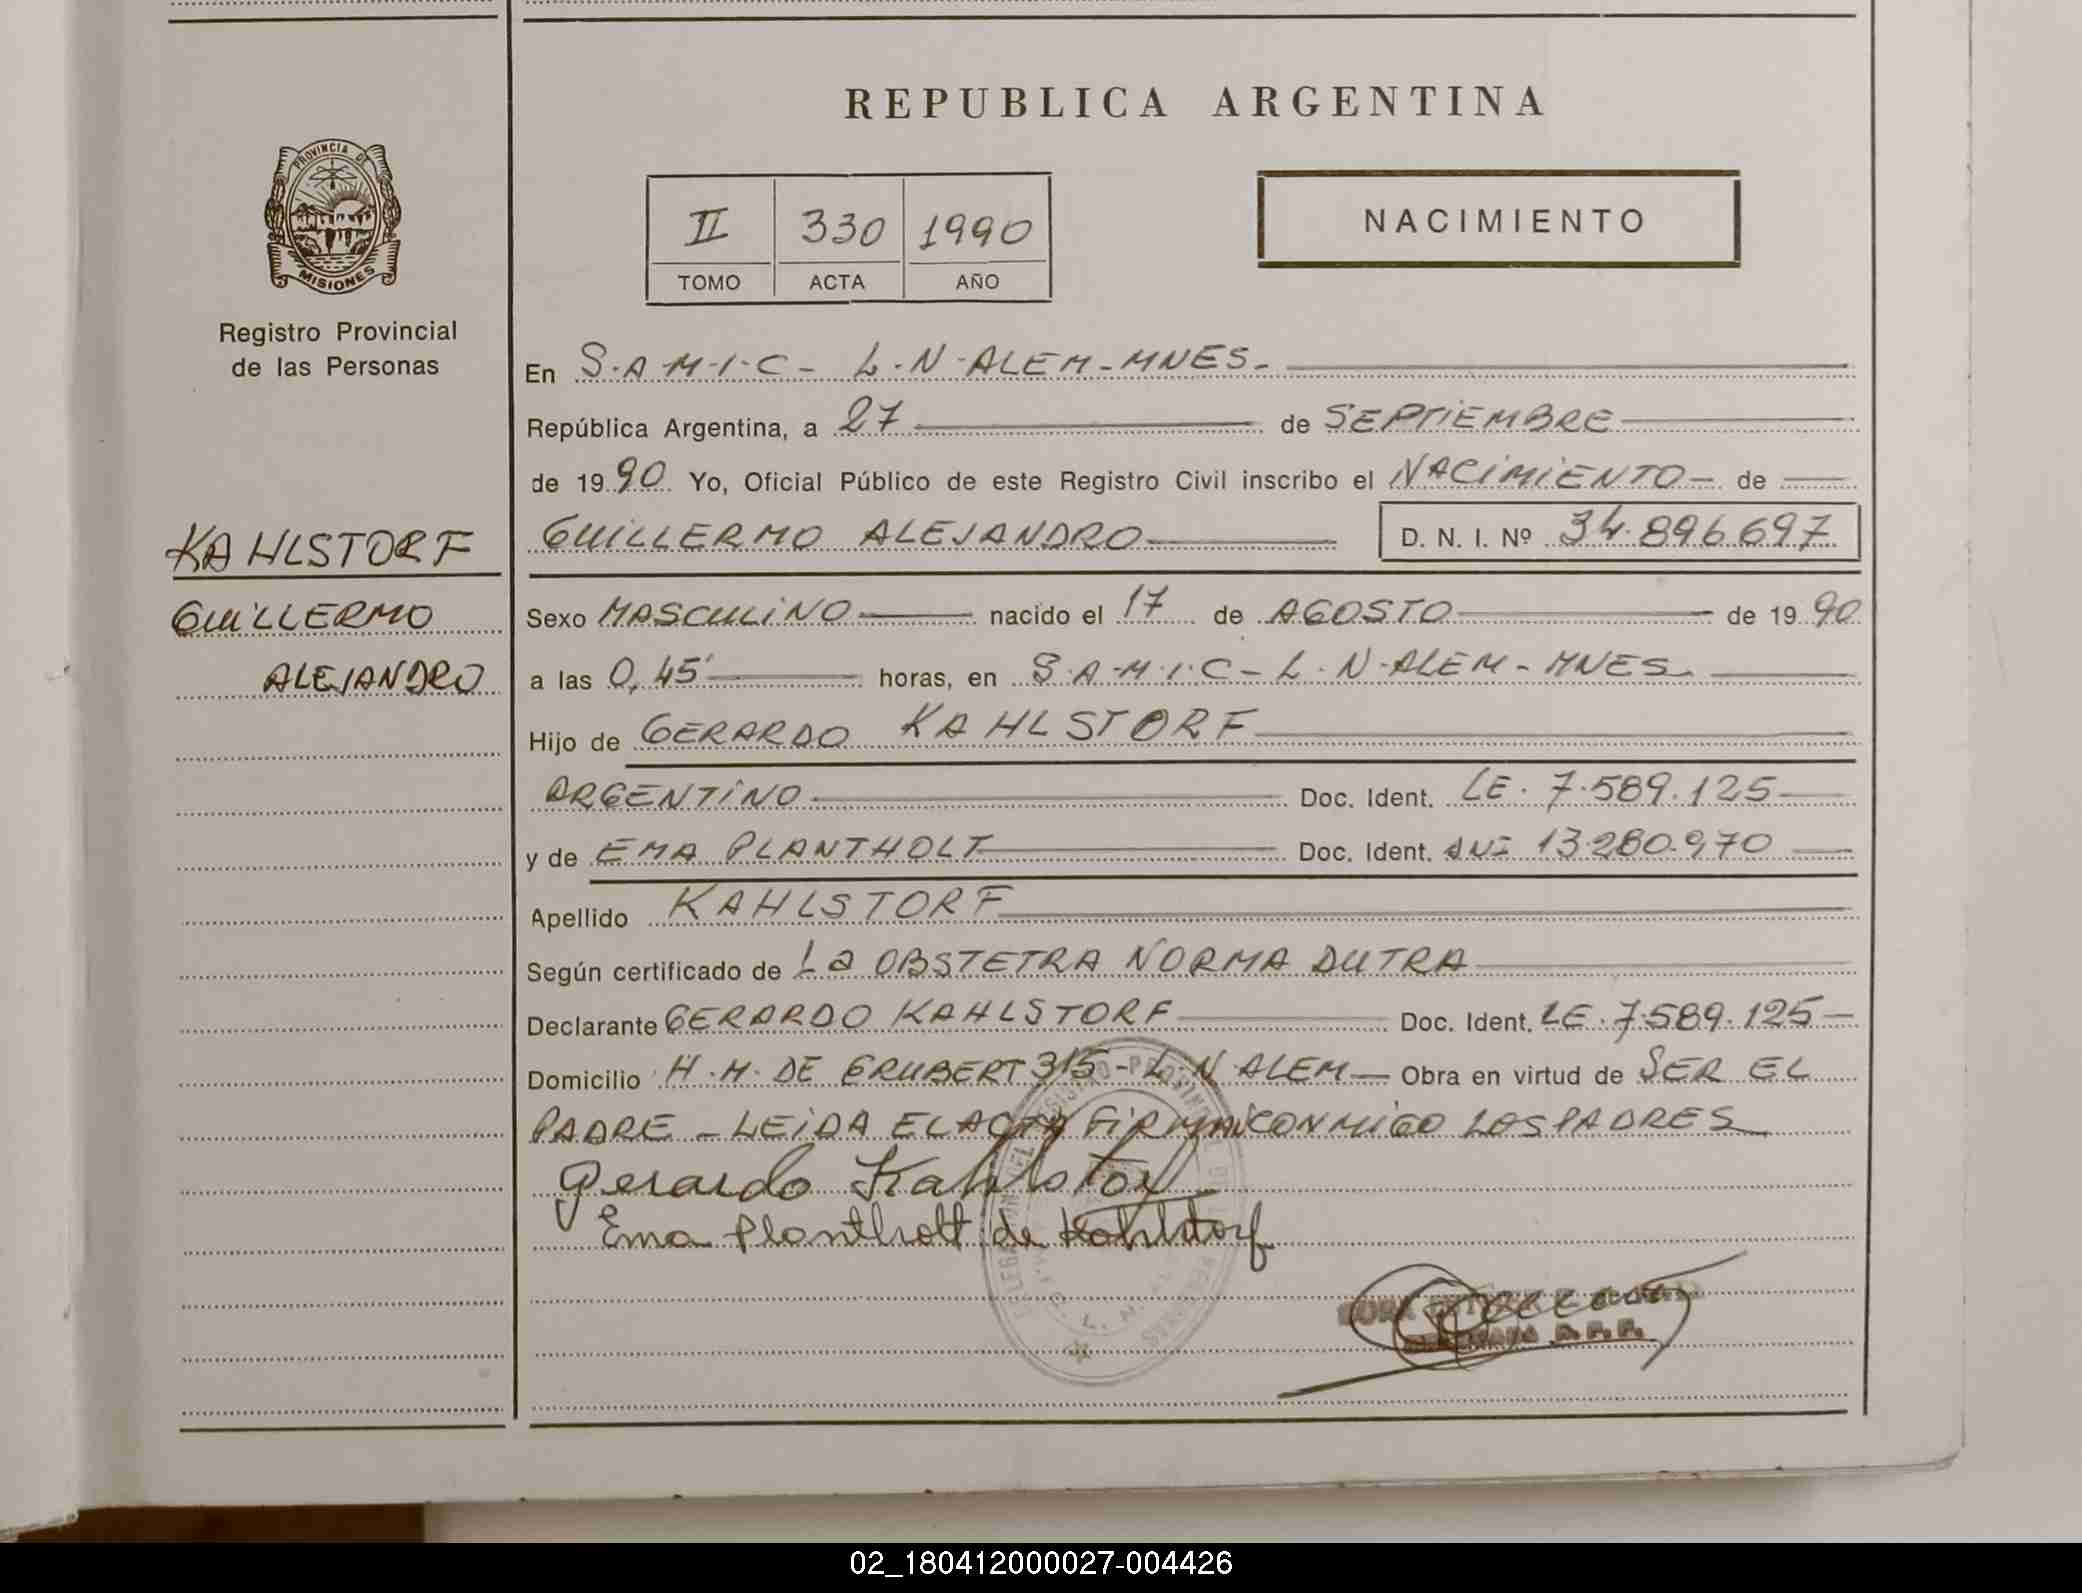 REPUBLICA ARGENTINA
PROVINCIA DE
MISIONES
Registro Provincial
de las Personas
II 330 1990
TOMO ACTA AÑO
NACIMIENTO
En S.A.M.I.C - L.N.ALEM-MNES-
República Argentina, a 27 de SEPTIEMBRE
de 1990 Yo, Oficial Público de este Registro Civil inscribo el NACIMIENTO - de
GUILLERMO ALEJANDRO D. N. I. Nº 34.896.697
KAHLSTORF
GUILLERMO
ALEJANDRO
Sexo MASCULINO nacido el 17 de AGOSTO de 1990
a las 0,45' horas, en S.A.M.I.C - L.N.ALEM - MNES
Hijo de GERARDO KAHLSTORF
ARGENTINO Doc. Ident. LE. 7.589.125
y de EMA PLANTHOLT Doc. Ident. DNI 13.280.970
Apellido KAHLSTORF
Según certificado de La OBSTETRA NORMA DUTRA
Declarante GERARDO KAHLSTORF Doc. Ident. LE. 7.589.125
Domicilio H.M. DE GRUBERT 315 - L.N ALEM Obra en virtud de SER EL
PADRE - LEIDA EL ACTA FIRMAN CONMIGO LOS PADRES
Gerardo Kahlstorf
Ema Plantholt de Kahlstorf
02_180412000027-004426